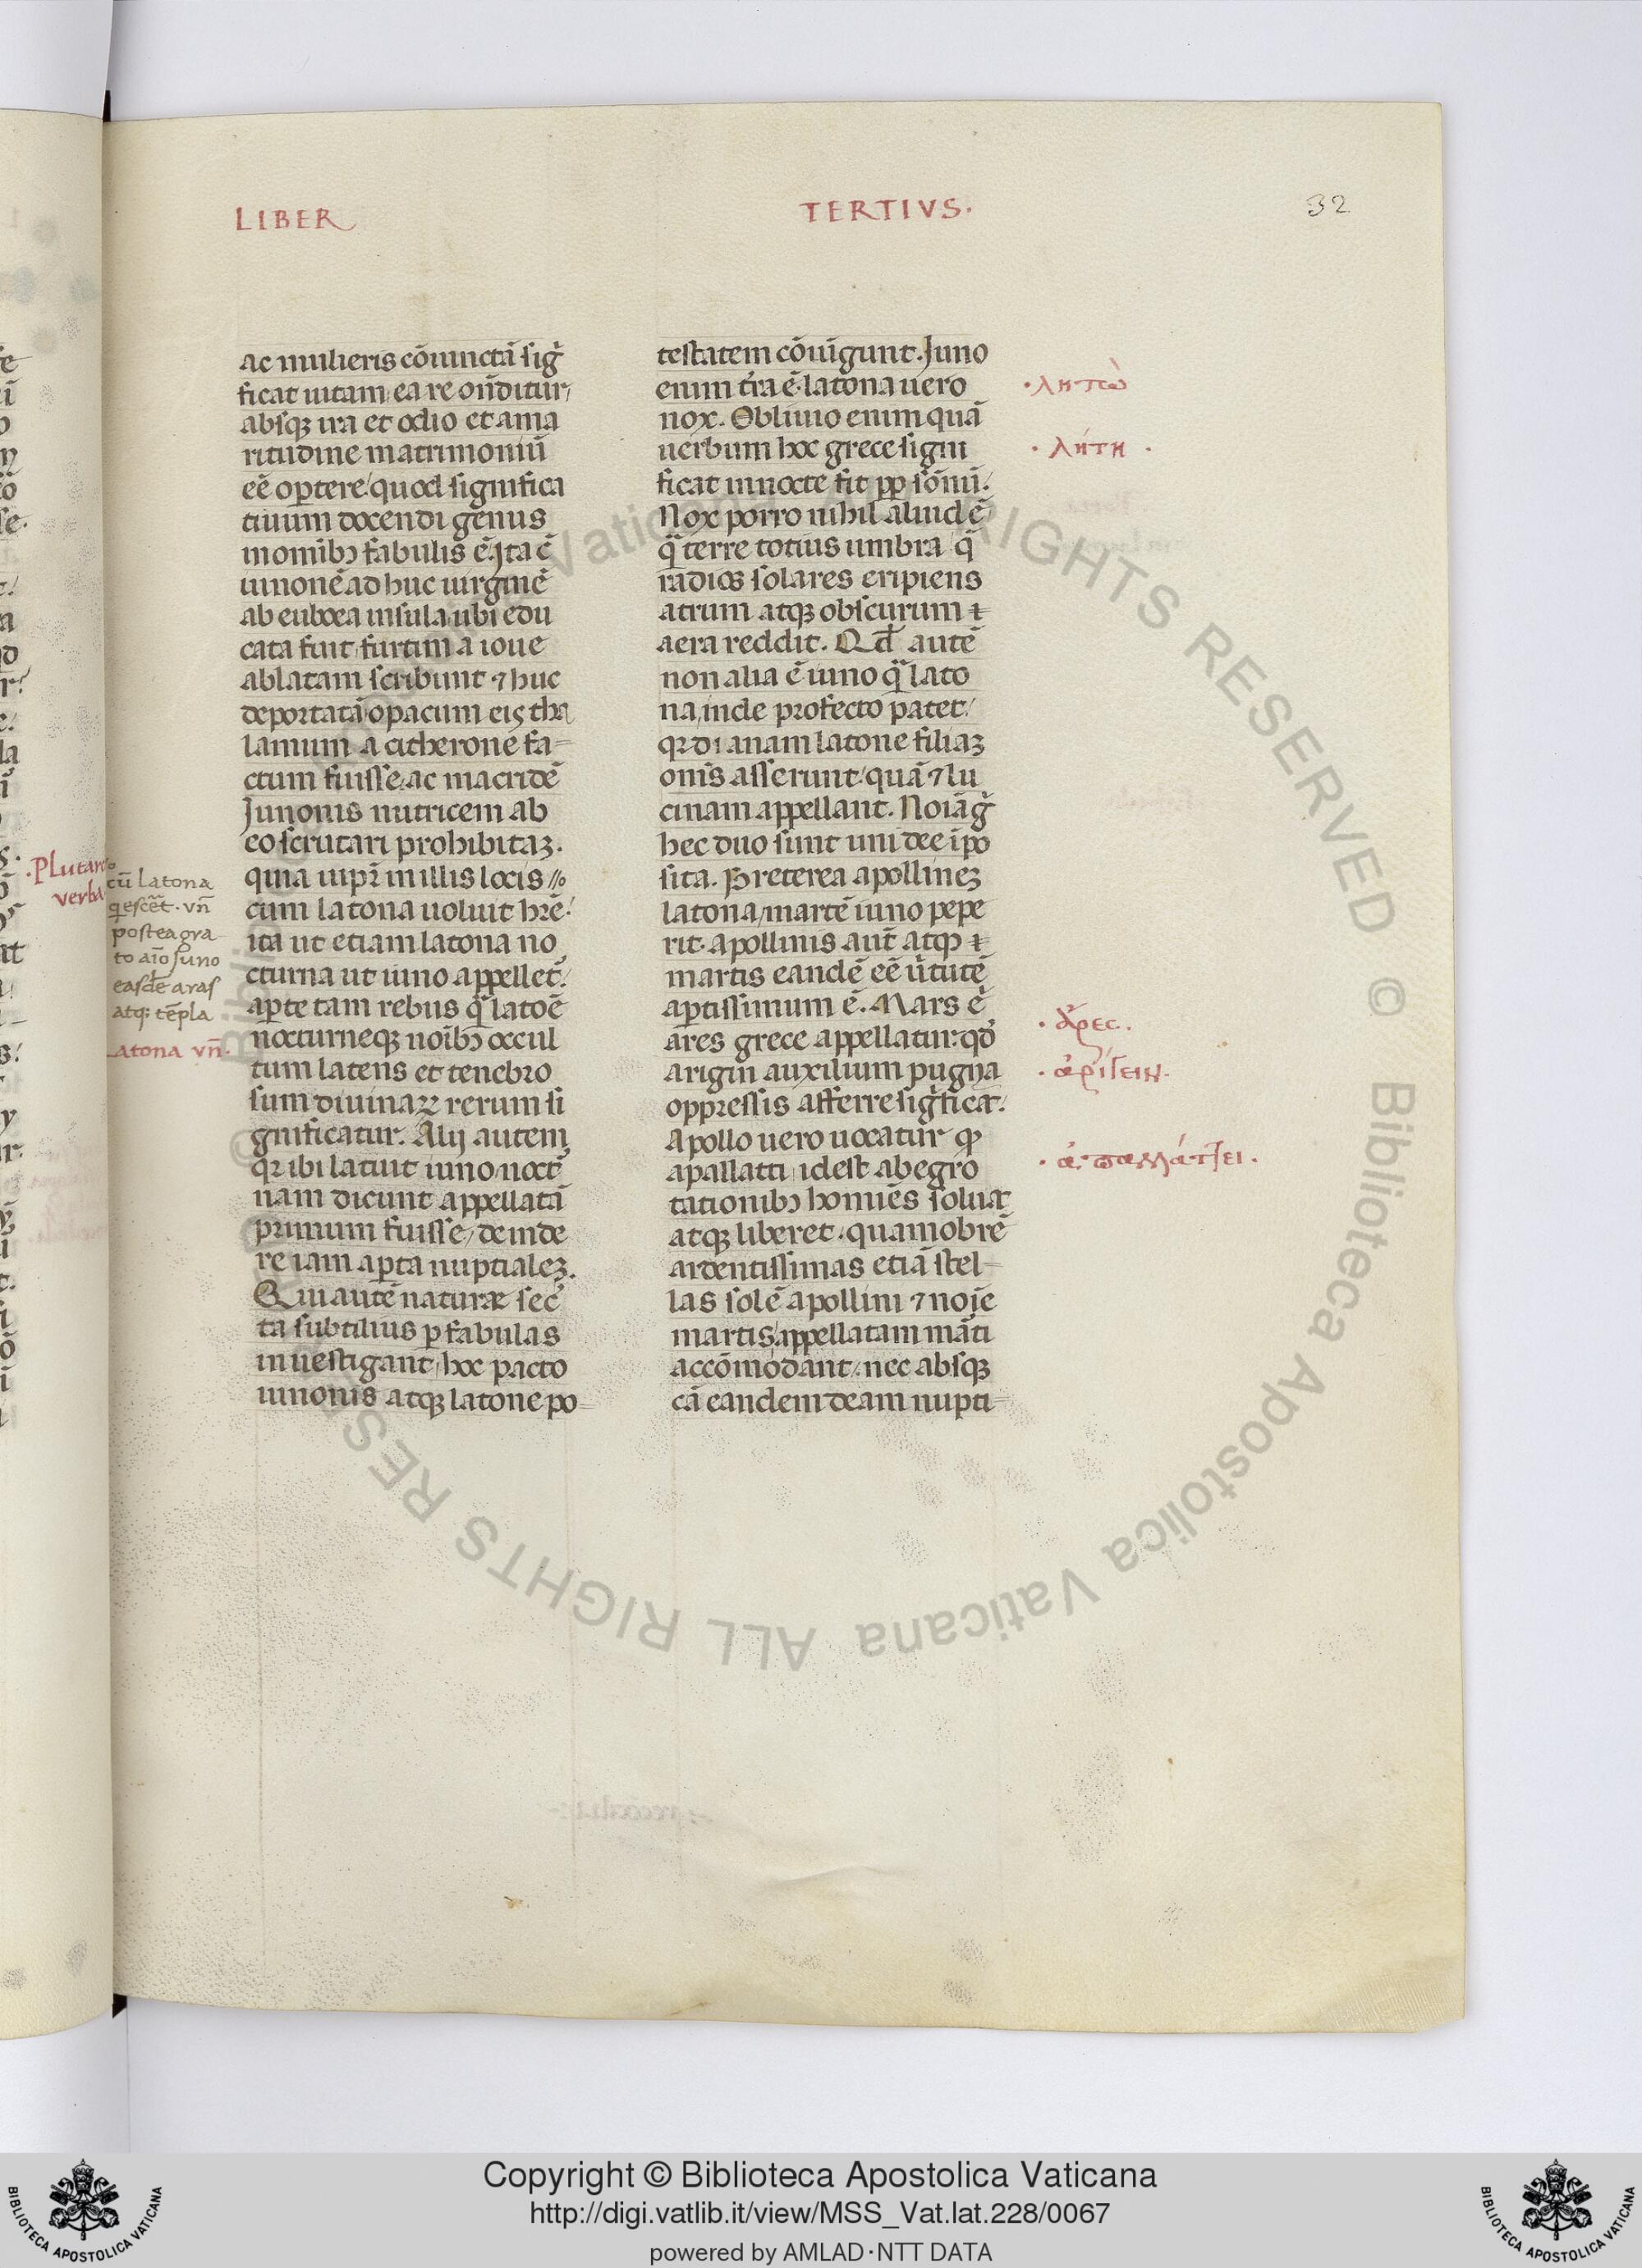 LIBER
TERTIVS.
32
ac mulieris cōiunctā sig̃
ficat uitam ea re on̄ditur,
absqꝫ ira et odio et ama
ritudine matrimoniū
eē oꝑtere quod significa
tiuum docendi genus
moniƀꝫ fabulis ē. Ita ē
iunonē ad huc uirginē
ab euboea insula ubi edu
cata fuit furtim a ioue
ablatam scribunt ⁊ huc
deportatā opacum eis tha
lamum a citherone fa-
ctum fuisse, ac macridē
Junonis nutricem ab
eo scrutari prohibitaꝫ.
quia iupi᷑ in illis locis //o
cum latona uoluit hr̄e.
ita ut etiam latona no
cturna ut iuno appellet᷑.
aꝑte tam rebus q̄ latoē
nocturneqꝫ noīƀꝫ occul
tum latens et tenebro
sum diuinaꝝ rerum si
gnificatur. Alij autem
qꝛ ibi latuit iuno noct᷑
nam dicunt appellatā
primum fuisse, deinde
re iam aꝑta nuptialeꝫ.
Qui autē naturæ sec᷑
ta subtilius ꝑ fabulas
inuestigant, hoc pacto
iunonis atqꝫ latone po-
testatem cōiūgunt. Juno
enim t᷑ra ē. latona uero
nox. Obliuio enim quā
uerbum hoc grece signi
ficat in nocte fit ꝓp som̄ū.
Nox porro nihil aliud ē
q̄ terre totius umbra q̄
radios solares eripiens
atrum atqꝫ obscurum
aera reddit. Qd̄ autē
non alia ē iuno q̄ lato
na, inde profecto patet,
qꝛ dianam latone filiaꝫ
om̄s asserunt, quā ⁊ lu
cinam appellant. Noīa g᷑
hec duo sunt uni dee īpo
sita. Preterea apollineꝫ
latona, martē iuno pepe
rit. apollinis aut̄ atqꝫ
martis eandē eē u᷑tutē
aꝑtissimum ē. Mars ē
ares grece appellatur: qd᷑
arigin auxilium pugna
oppressis afferre sig̃ficat.
Apollo uero uocatur ꝙ
apallatti, idest ab egro
tationiƀꝫ homīes soluat
atqꝫ liberet. quamobrē
ardentissimas etiā stel-
las solē apollini ⁊ noīe
martis appellatam m̄ati
accōmodant, nec absqꝫ
cā eandem deam nupti-
.Plutarc
verba
cū latona
postea gra
to aīo Juno
easdē aras
atqꝫ tēpla
atona vn̄.
·ληπὼ
·λήτη·
·ἄρες.
·ἀρίγειν.
·ἀπαλλάττει.
Copyright © Biblioteca Apostolica Vaticana
http://digi.vatlib.it/view/MSS_Vat.lat.228/0067
powered by AMLAD·NTT DATA
BIBLIOTECA APOSTOLICA VATICANA
BIBLIOTECA APOSTOLICA VATICANA
© Biblioteca Apostolica Vaticana ALL RIGHTS RESERVED